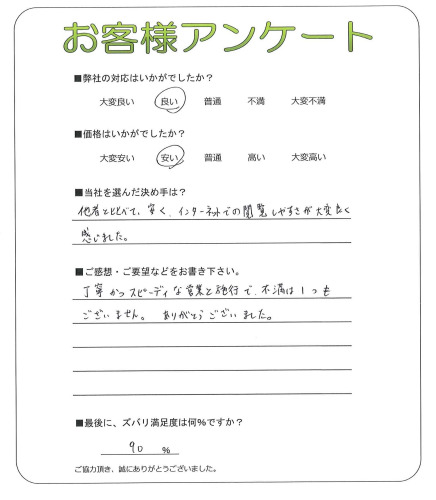 お客様アンケート
■弊社の対応はいかがでしたか？
大変良い 良い 普通 不満 大変不満
■価格はいかがでしたか？
大変安い 安い 普通 高い 大変高い
■当社を選んだ決め手は？
他者と比べて、安く、インターネットでの閲覧しやすさが大変良く
感じました。
■ご感想・ご要望などをお書き下さい。
丁寧かつスピーディな営業と施行で、不満は1つも
ございません。 ありがとうございました。
■最後に、ズバリ満足度は何%ですか？
90 %
ご協力頂き、誠にありがとうございました。